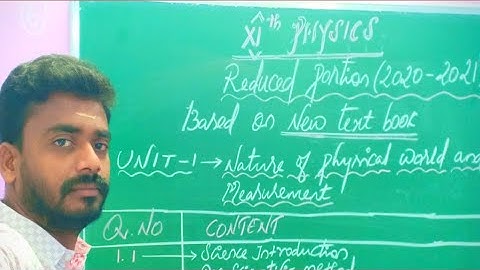 XI th PHYSICS
Reduced portion (2020-2021)
Based on New text book
UNIT-1 → Nature of physical world and
Measurement
Q. NO CONTENT
1.1 → Science Introduction